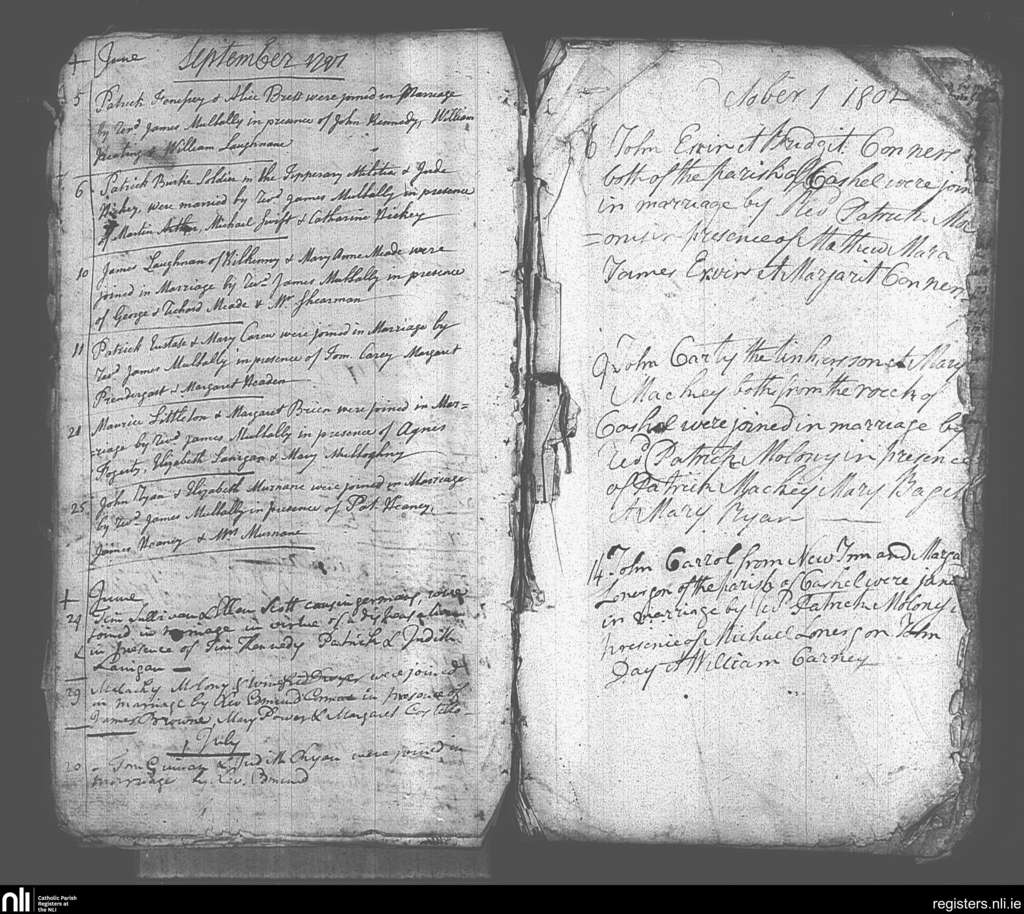 + June September 1797
5 Patrick & Alice Brett were joined in Marriage
by Revd James Mullally in presence of John Kennedy, William
Keating & William Laughnane
6 Patrick Burke Soldier in the Tipperary Militia & Jude
Hickey, were married by Revd James Mullally in presence
of Martin Michael & Catharine Hickey
10 James Laughnan of Kilkenny & Mary Anne Meade were
joined in Marriage by Revd James Mullally in presence
of George & Richard Meade & Mr Shearman
11 Patrick Eustase & Mary Carew were joined in Marriage by
Revd James Mullally in presence of Tom. Carey Margaret
Prendergast & Margaret Headen
21 Maurice Littleton & Margaret Brien were joined in Mar=
=riage by Revd James Mullally in presence of Agnes
Fogerty, Elizabeth Lanigan & Mary
25 John Ryan & Elizabeth Murnane were joined in Marriage
by Revd James Mullally in presence of Pat Heaney,
James Heaney & Mrs Murnane
+ June
24 Tim Sullivan & Ellen Scott were
joined in in virtue of a
in presence of Tim Kennedy Patrick & Judith
Lanigan
29 Malachy Molony & were joined
in marriage by Rev Edmund in presence of
James Browne, Mary Power & Margaret Costello
July
10 Tom & Judith Ryan were joined in
marriage by Rev. Edmund
ctober 1 1802
6 John Erwin et Bridgit Conners
both of the parish of Cashel were join
in marriage by Revd Patrick Mo
=ony in presence of Mathew Mara
James Erwin et Margarit Conners
9 John Carty the tinkers son et Mary
Mackey both from the rock of
Cashel were joined in marriage by
Revd Patrick Molony in presence
of Patrick Mackey Mary
& Mary Ryan
14 John Carrol from New Inn and Marga
Lonergon of the parish of Cashel were joind
in marriage by Revd Patrick Molony i
presence of Michael Lonergon John
Day & William Carney
nli Catholic Parish
Registers at
the NLI
registers.nli.ie